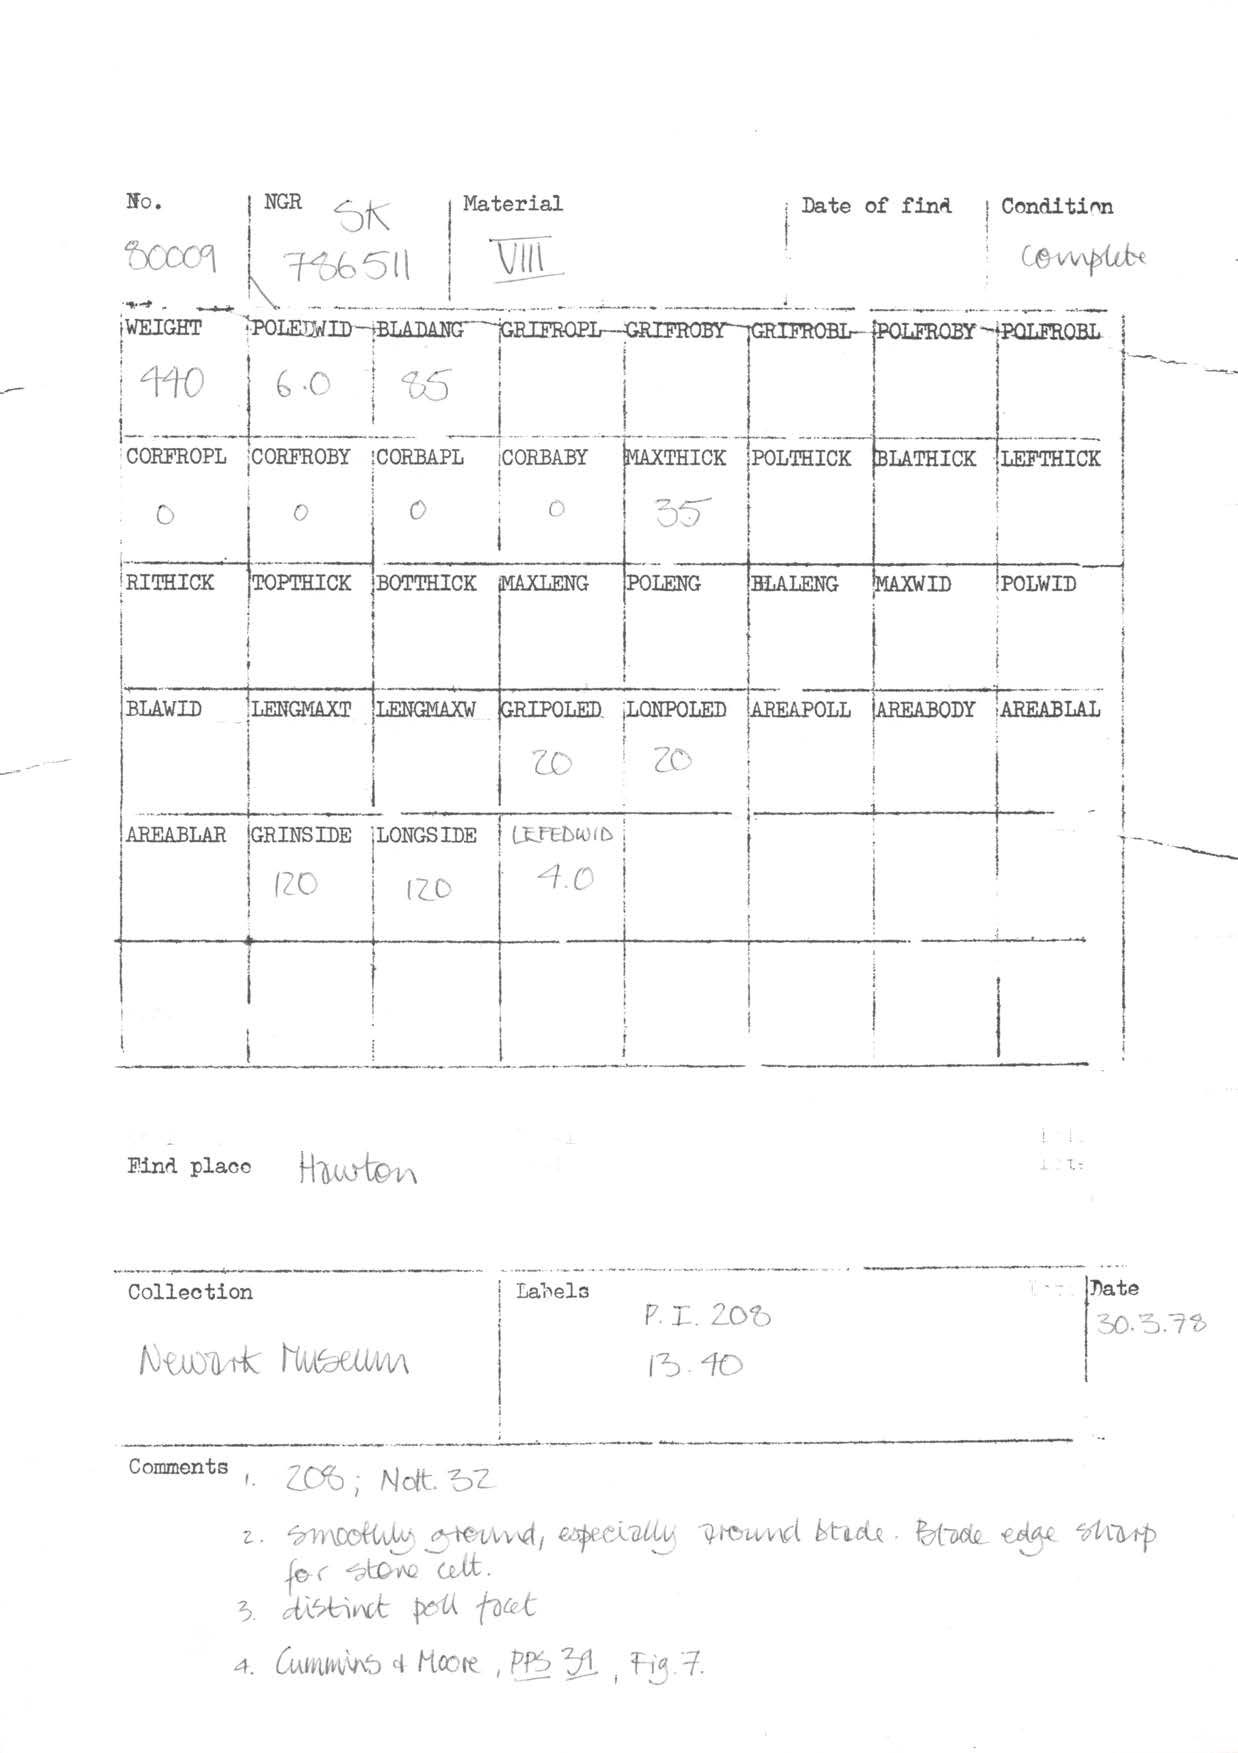 No. NGR SK Material Date of find Condition
80009 786511 VIII complete
WEIGHT POLEDWID BLADANG GRIFROPL GRIFROBY GRIFROBL POLFROBY POLFROBL
440 6.0 85
CORFROPL CORFROBY CORBAPL CORBABY MAXTHICK POLTHICK BLATHICK LEFTHICK
0 0 0 0 35
RITHICK TOPTHICK BOTTHICK MAXLENG POLENG BLALENG MAXWID POLWID
BLAWID LENGMAXT LENGMAXW GRIPOLED LONPOLED AREAPOLL AREABODY AREABLAL
20 20
AREABLAR GRINSIDE LONGSIDE LEFEDWID
120 120 4.0
Find place Hawton
Collection Labels Date
P.I. 208 30.3.78
Newark Museum 13.40
Comments 1. 208; Nott. 32
2. smoothly ground, especially around blade. Blade edge sharp
for stone celt.
3. distinct poll facet
4. Cummins & Moore, PPS 39, Fig. 7.